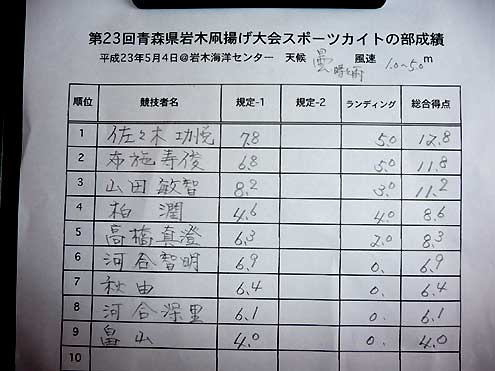 第23回青森県岩木凧揚げ大会スポーツカイトの部成績
平成23年5月4日@岩木海洋センター 天候 曇時々雨 風速 1.0~5.0m
順位 競技者名 規定-1 規定-2 ランディング 総合得点
1 佐々木功悦 7.8 5.0 12.8
2 布施寿俊 6.8 5.0 11.8
3 山田敏智 8.2 3.0 11.2
4 柏 潤 4.6 4.0 8.6
5 高橋真澄 6.3 2.0 8.3
6 河合智明 6.9 0. 6.9
7 秋由 6.4 0. 6.4
8 河合深里 6.1 0. 6.1
9 畠山 4.0 0. 4.0
10